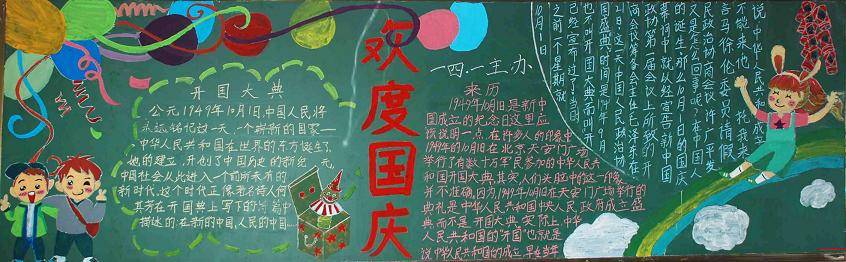 开国大典
公元1949年10月1日,中国人民将
永远铭记这一天,一个崭新的国家—
中华人民共和国在世界的东方诞生了
她的建立,开创了中国历史的新纪元,
中国社会从此进入一个前所未有的
新时代,这个时代正像
在开国典上写下的
描述的:在新的中国,人民的中国
欢度国庆
一四.一主.办
来历
1949年10月1日是新中
国成立的纪念日这里应
该说明一点,在许多人的印象中
1949年的10月1日在北京天安门广场
举行了有数十万军民参加的中华人民共
和国开国大典,其实,人们头脑中的这一印象
并不准确,因为,1949年10月1日在天安门广场举行的
典礼是中华人民共和国中央人民政府成立盛
典,而不是开国大典,实际上,中华
人民共和国的"开国"也就是
说中华人民共和国的成立,早在当年
10月1日
之前一个星期就
已经宣布过了.当时
也不叫开国大典,而叫开
国盛典,时间是1949年9月
21日这一天,中国人民政治协
商会议筹备会主任毛泽东在
政协第一届会议上所致的开
幕词中就已经宣告新中国
的诞生.那么10月1日的国庆
又是怎么回事呢?在中国人
民政治协商会议,许广平发
言:马叙伦委员请假
不能来,他托我来
说中华人民共和国成立